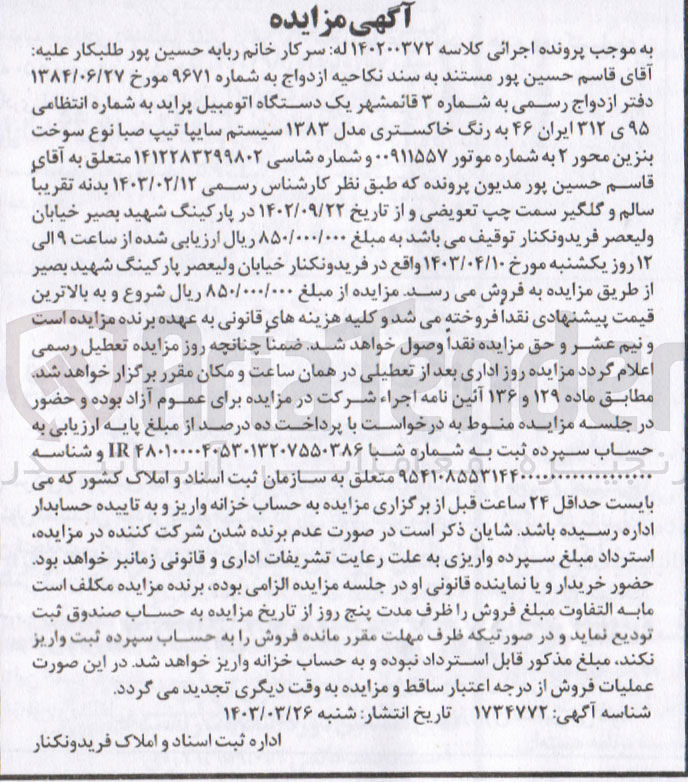 آگهی مزایده
به موجب پرونده اجرائی کلاسه ۱۴۰۲۰۰۳۷۲ له: سرکار خانم ربابه حسین پور طلبکار علیه:
آقای قاسم حسین پور مستند به سند نکاحیه ازدواج به شماره ۹۶۷۱ مورخ ۱۳۸۴/۰۶/۲۷
دفتر ازدواج رسمی به شماره ۳ قائمشهر یک دستگاه اتومبیل پراید به شماره انتظامی
۹۵ ی ۳۱۲ ایران ۴۶ به رنگ خاکستری مدل ۱۳۸۳ سیستم سایپا تیپ صبا نوع سوخت
بنزین محور ۲ به شماره موتور ۰۰۹۱۱۵۵۷ و شماره شاسی ۱۴۱۲۲۸۳۲۹۹۸۰۲ متعلق به آقای
قاسم حسین پور مدیون پرونده که طبق نظر کارشناس رسمی ۱۴۰۳/۰۲/۱۲ بدنه تقریباً
سالم و گلگیر سمت چپ تعویضی و از تاریخ ۱۴۰۲/۰۹/۲۲ در پارکینگ شهید بصیر خیابان
ولیعصر فریدونکنار توقیف می باشد به مبلغ ۸۵۰/۰۰۰/۰۰۰ ریال ارزیابی شده از ساعت ۹ الی
۱۲ روز یکشنبه مورخ ۱۴۰۳/۰۴/۱۰ واقع در فریدونکنار خیابان ولیعصر پارکینگ شهید بصیر
از طریق مزایده به فروش می رسد. مزایده از مبلغ ۸۵۰/۰۰۰/۰۰۰ ریال شروع و به بالاترین
قیمت پیشنهادی نقداً فروخته می شد و کلیه هزینه های قانونی به عهده برنده مزایده است
و نیم عشر و حق مزایده نقداً وصول خواهد شد. ضمناً چنانچه روز مزایده تعطیل رسمی
اعلام گردد مزایده روز اداری بعد از تعطیلی در همان ساعت و مکان مقرر برگزار خواهد شد.
مطابق ماده ۱۲۹ و ۱۳۶ آئین نامه اجراء شرکت در مزایده برای عموم آزاد بوده و حضور
در جلسه مزایده منوط به درخواست با پرداخت ده درصد از مبلغ پایه ارزیابی به
حساب سپرده ثبت به شماره شبا IR ۴۸۰۱۰۰۰۰۴۰۵۳۰۱۳۲۰۷۵۵۰۳۸۶ و شناسه
متعلق به سازمان ثبت اسناد و املاک کشور که می
بایست حداقل ۲۴ ساعت قبل از برگزاری مزایده به حساب خزانه واریز و به تاییده حسابدار
اداره رسیده باشد. شایان ذکر است در صورت عدم برنده شدن شرکت کننده در مزایده،
استرداد مبلغ سپرده واریزی به علت رعایت تشریفات اداری و قانونی زمانبر خواهد بود.
حضور خریدار و یا نماینده قانونی او در جلسه مزایده الزامی بوده، برنده مزایده مکلف است
مابه التفاوت مبلغ فروش را ظرف مدت پنج روز از تاریخ مزایده به حساب صندوق ثبت
تودیع نماید و در صورتیکه ظرف مهلت مقرر مانده فروش را به حساب سپرده ثبت واریز
نکند، مبلغ مذکور قابل استرداد نبوده و به حساب خزانه واریز خواهد شد. در این صورت
عملیات فروش از درجه اعتبار ساقط و مزایده به وقت دیگری تجدید می گردد.
شناسه آگهی: ۱۷۳۴۷۷۲ تاریخ انتشار: شنبه ۱۴۰۳/۰۳/۲۶
اداره ثبت اسناد و املاک فریدونکنار
AriaTender